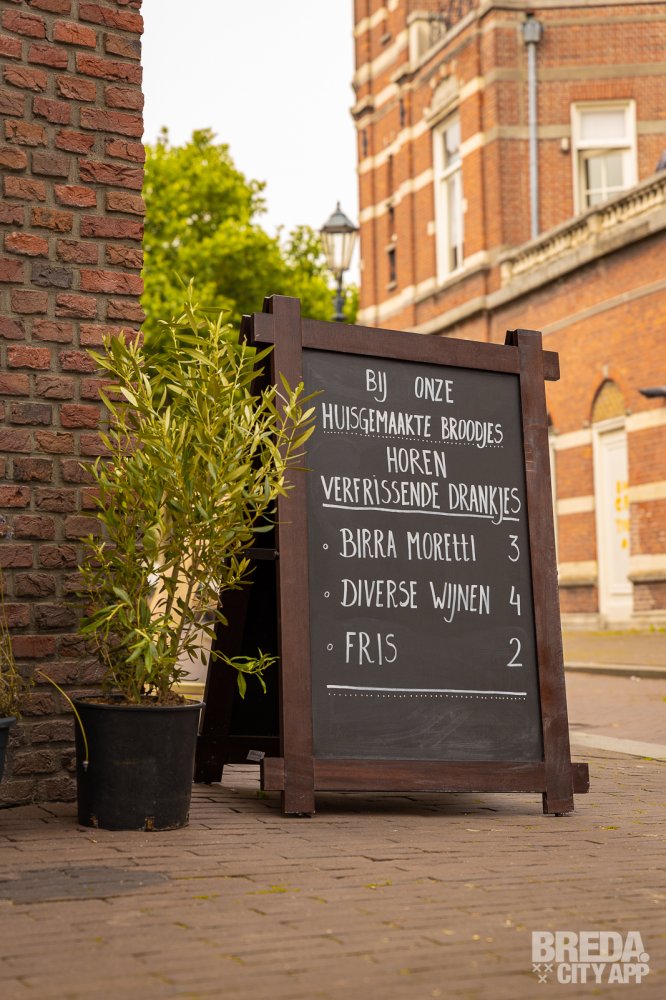 BIJ ONZE
HUISGEMAAKTE BROODJES
HOREN
VERFRISSENDE DRANKJES
◦ BIRRA MORETTI 3
◦ DIVERSE WIJNEN 4
◦ FRIS 2
BREDA.
CITY APP